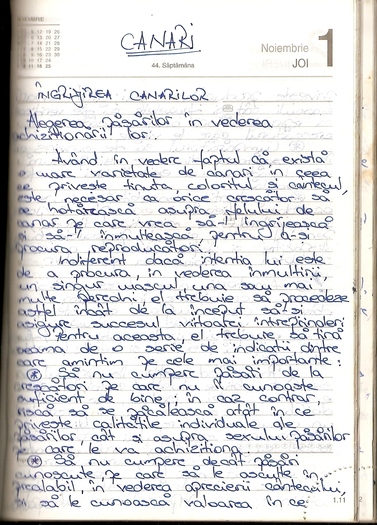 CANARI
Noiembrie 1
JOI
44. Săptămâna
ÎNGRIJIREA CANARILOR
Alegerea păsărilor în vederea
achiziționării lor.
Având în vedere faptul că, există
o mare varietate de canari în ceea
ce privește ținuta, coloritul și cântecul,
este necesar ca orice crescător să
se hotărească asupra felului de
canar pe care vrea să-l îngrijească
și să-l înmulțească pentru a-și
procura reproducători.
Indiferent dacă intenția lui este
de a procura, în vederea înmulțirii,
un singur mascul una sau mai
multe perechi el trebuie să procedeze
astfel încât de la început să-și
asigure succesul viitoarei întreprinderi.
Pentru aceasta, el trebuie să țină
seama de o serie de indicații dintre
care amintim pe cele mai importante:
* Să nu cumpere păsări de la
crescători pe care nu îi cunoaște
suficient de bine, în caz contrar,
riscă să se păcălească atât în ce
privește calitățile individuale ale
păsărilor, cât și asupra sexului păsărilor
pe care le va achiziționa.
* Să nu cumpere decât păsări
cunoscute, pe care să le asculte în
prealabil, în vederea aprecierii cântecului,
și să le cunoască valoarea în ce
1.11